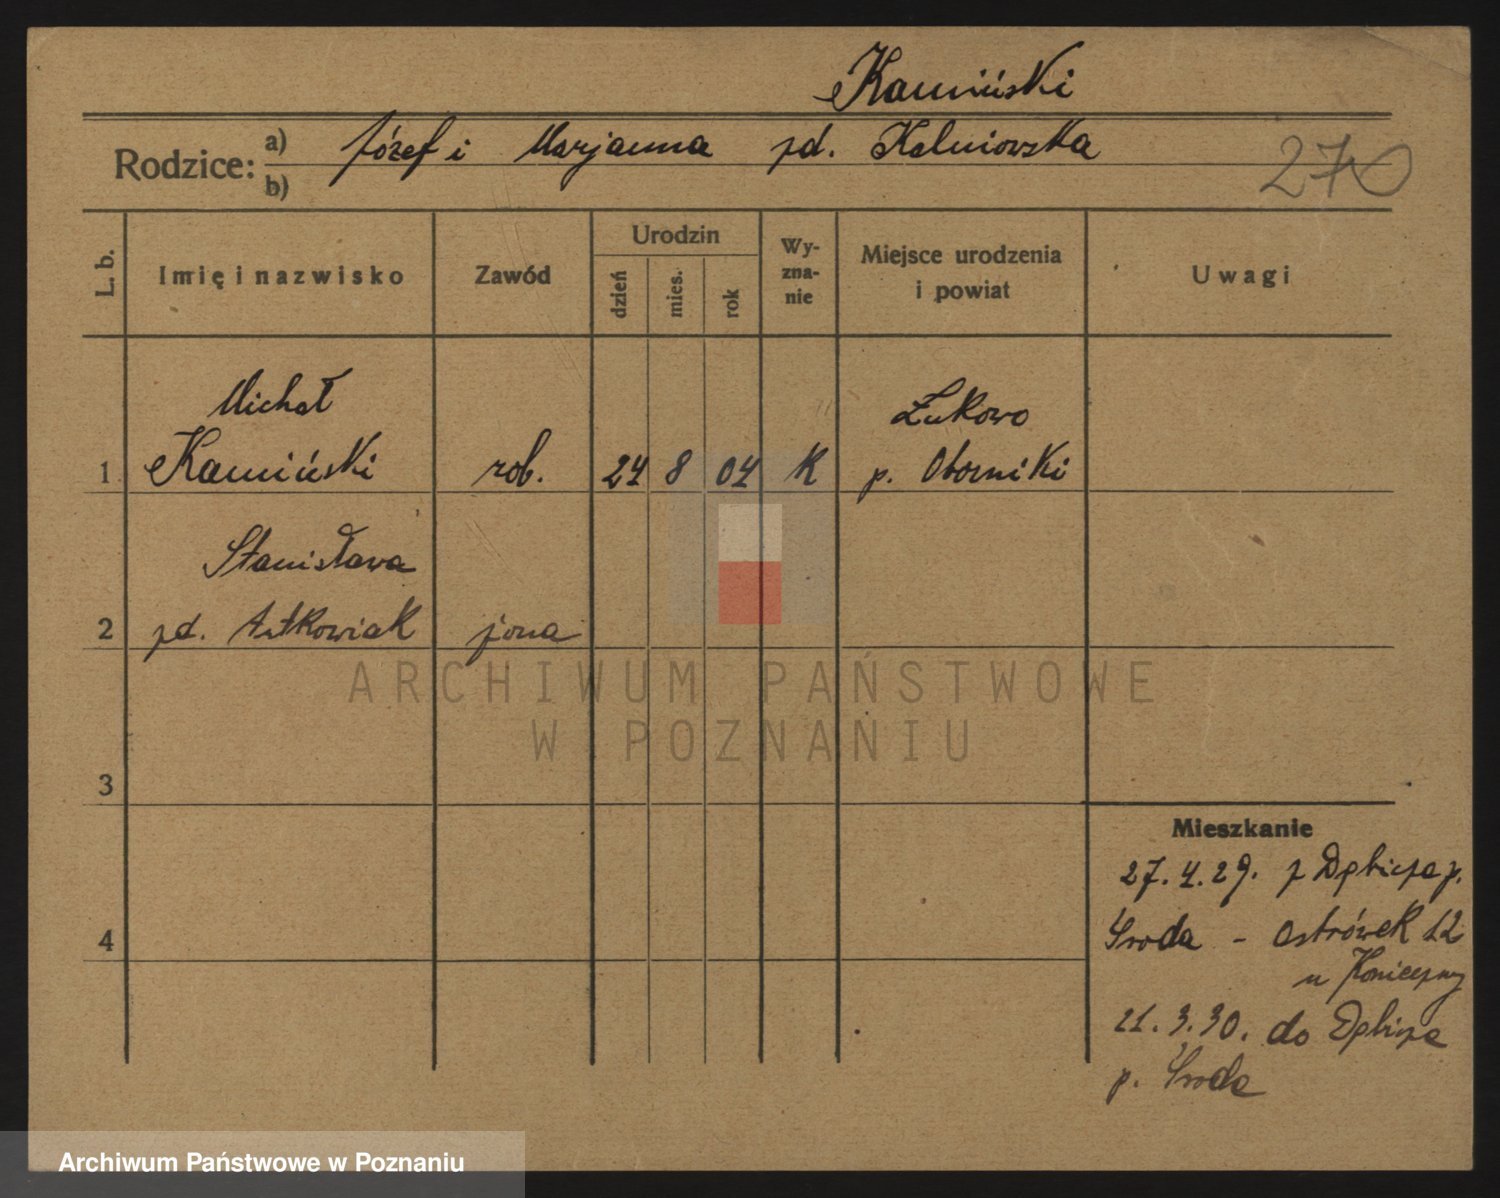 Kamiński
Rodzice: a) Józef i Marjanna zd. Kalniowska
b)
270
L. b.
Imię i nazwisko
Zawód
Urodzin
dzień
mies.
rok
Wy-
zna-
nie
Miejsce urodzenia
i powiat
Uwagi
Michał
1 Kamiński rob. 24 8 04 K
Łukowo
p. Oborniki
Stanisława
2 zd. Antkowiak żona
ARCHIWUM PAŃSTWOWE
W POZNANIU
3
4
Mieszkanie
27.4.29. z Dębicza p.
Środa - Ostrówek 12
u Konieczny
21.3.30. do Dębicza
p. Środa
Archiwum Państwowe w Poznaniu